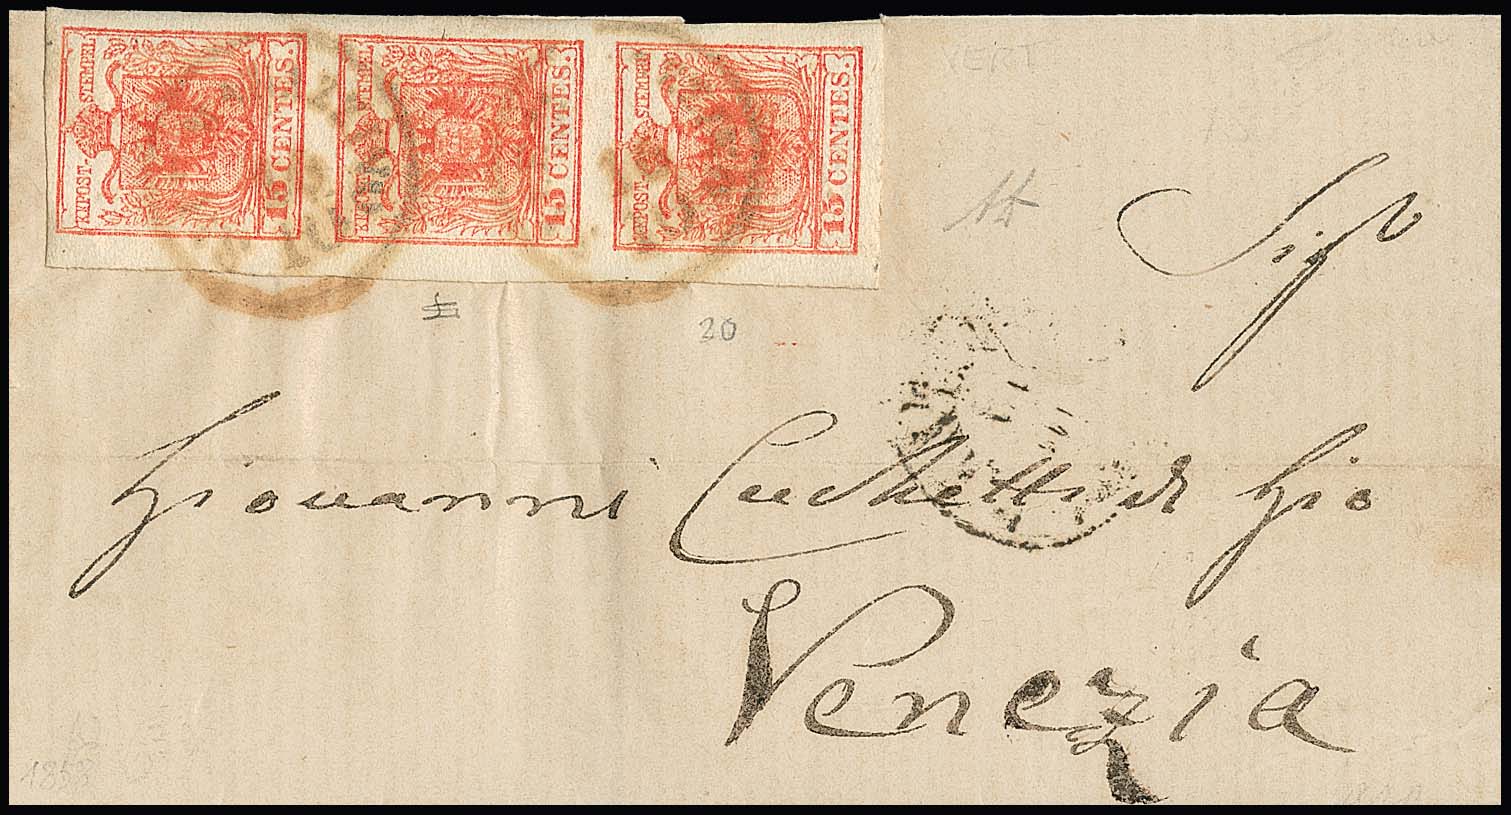 KKPOST-STEMPEL
15 CENTES.
KKPOST-STEMPEL
15 CENTES.
KKPOST-STEMPEL
15 CENTES.
VERT
15
20
Sigr
Giovanni Cuchetti di Gio
Venezia
1853